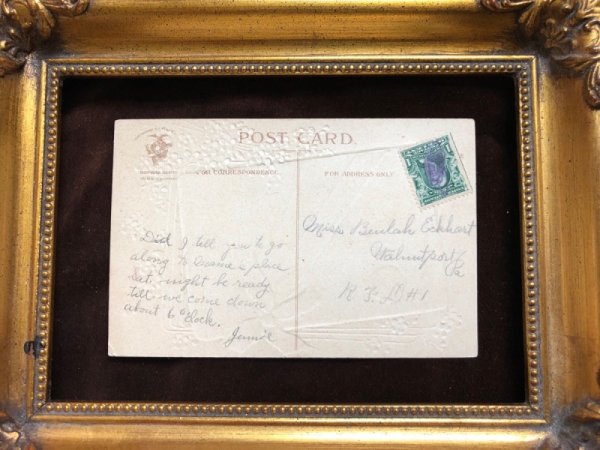 POST CARD
FOR CORRESPONDENCE
FOR ADDRESS ONLY
Did I tell you to go
along to place
Sat. night be ready
till we come down
about 6 o'clock.
Jennie
Miss Beulah Eckhart
Walnutport
Pa
R. F. D #1